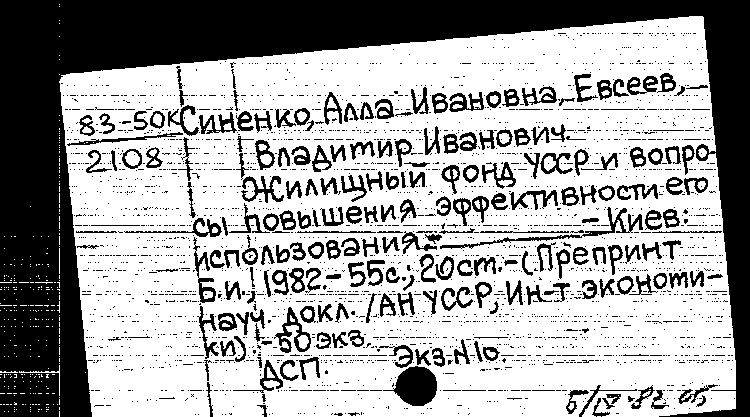 83-50К Синенко, Алла Ивановна, Евсеев,
2108 Владимир Иванович.
Жилищный фонд УССР и вопро-
сы повышения эффективности его
использования. – Киев:
Б.и., 1982.- 55с.; 20см.-(Препринт
науч. докл. /АН УССР, Ин-т экономи-
ки). -50 экз.
ДСП. Экз.N10.
5/IV-82 ОБ